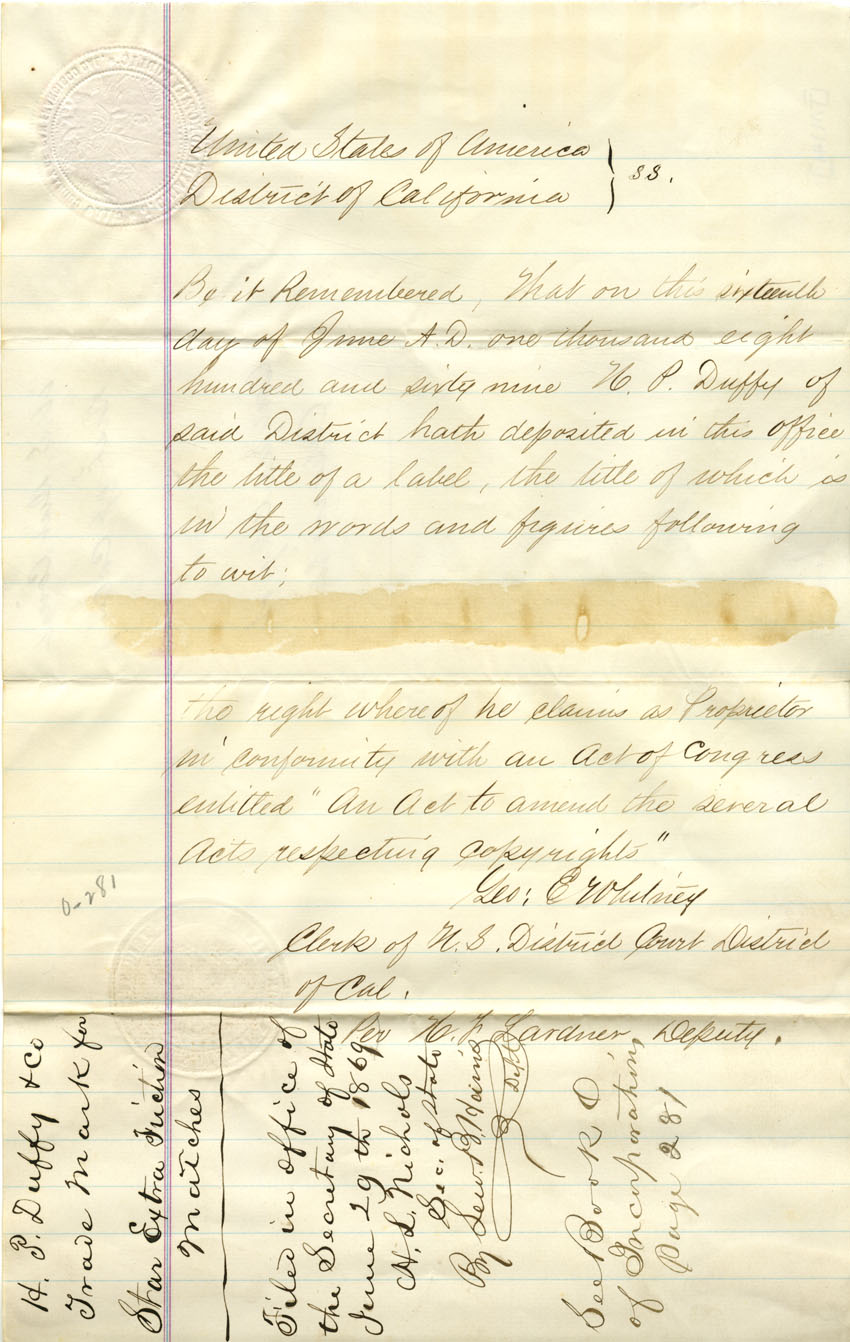 United States of America } ss.
District of California
Be it Remembered, That on this sixteenth
day of June A.D. one thousand eight
hundred and sixty nine H. P. Duffy of
said District hath deposited in this office
the title of a label, the title of which is
in the words and figures following
to wit;
the right whereof he claims as Proprietor
in conformity with an Act of Congress
entitled "An Act to amend the several
Acts respecting copyrights"
Geo: E Whitney
Clerk of U.S. District Court District
of Cal.
Per H. F. Gardner, Deputy.
O-281
H. P. Duffy & Co
Trade Mark for
Star Extra Friction
Matches
Filed in office of
the Secretary of State
June 29th 1869
H. L. Nichols
Sec. of State
By Lew. B. Harris
Dep
See Book O
of Incorporations
Page 281